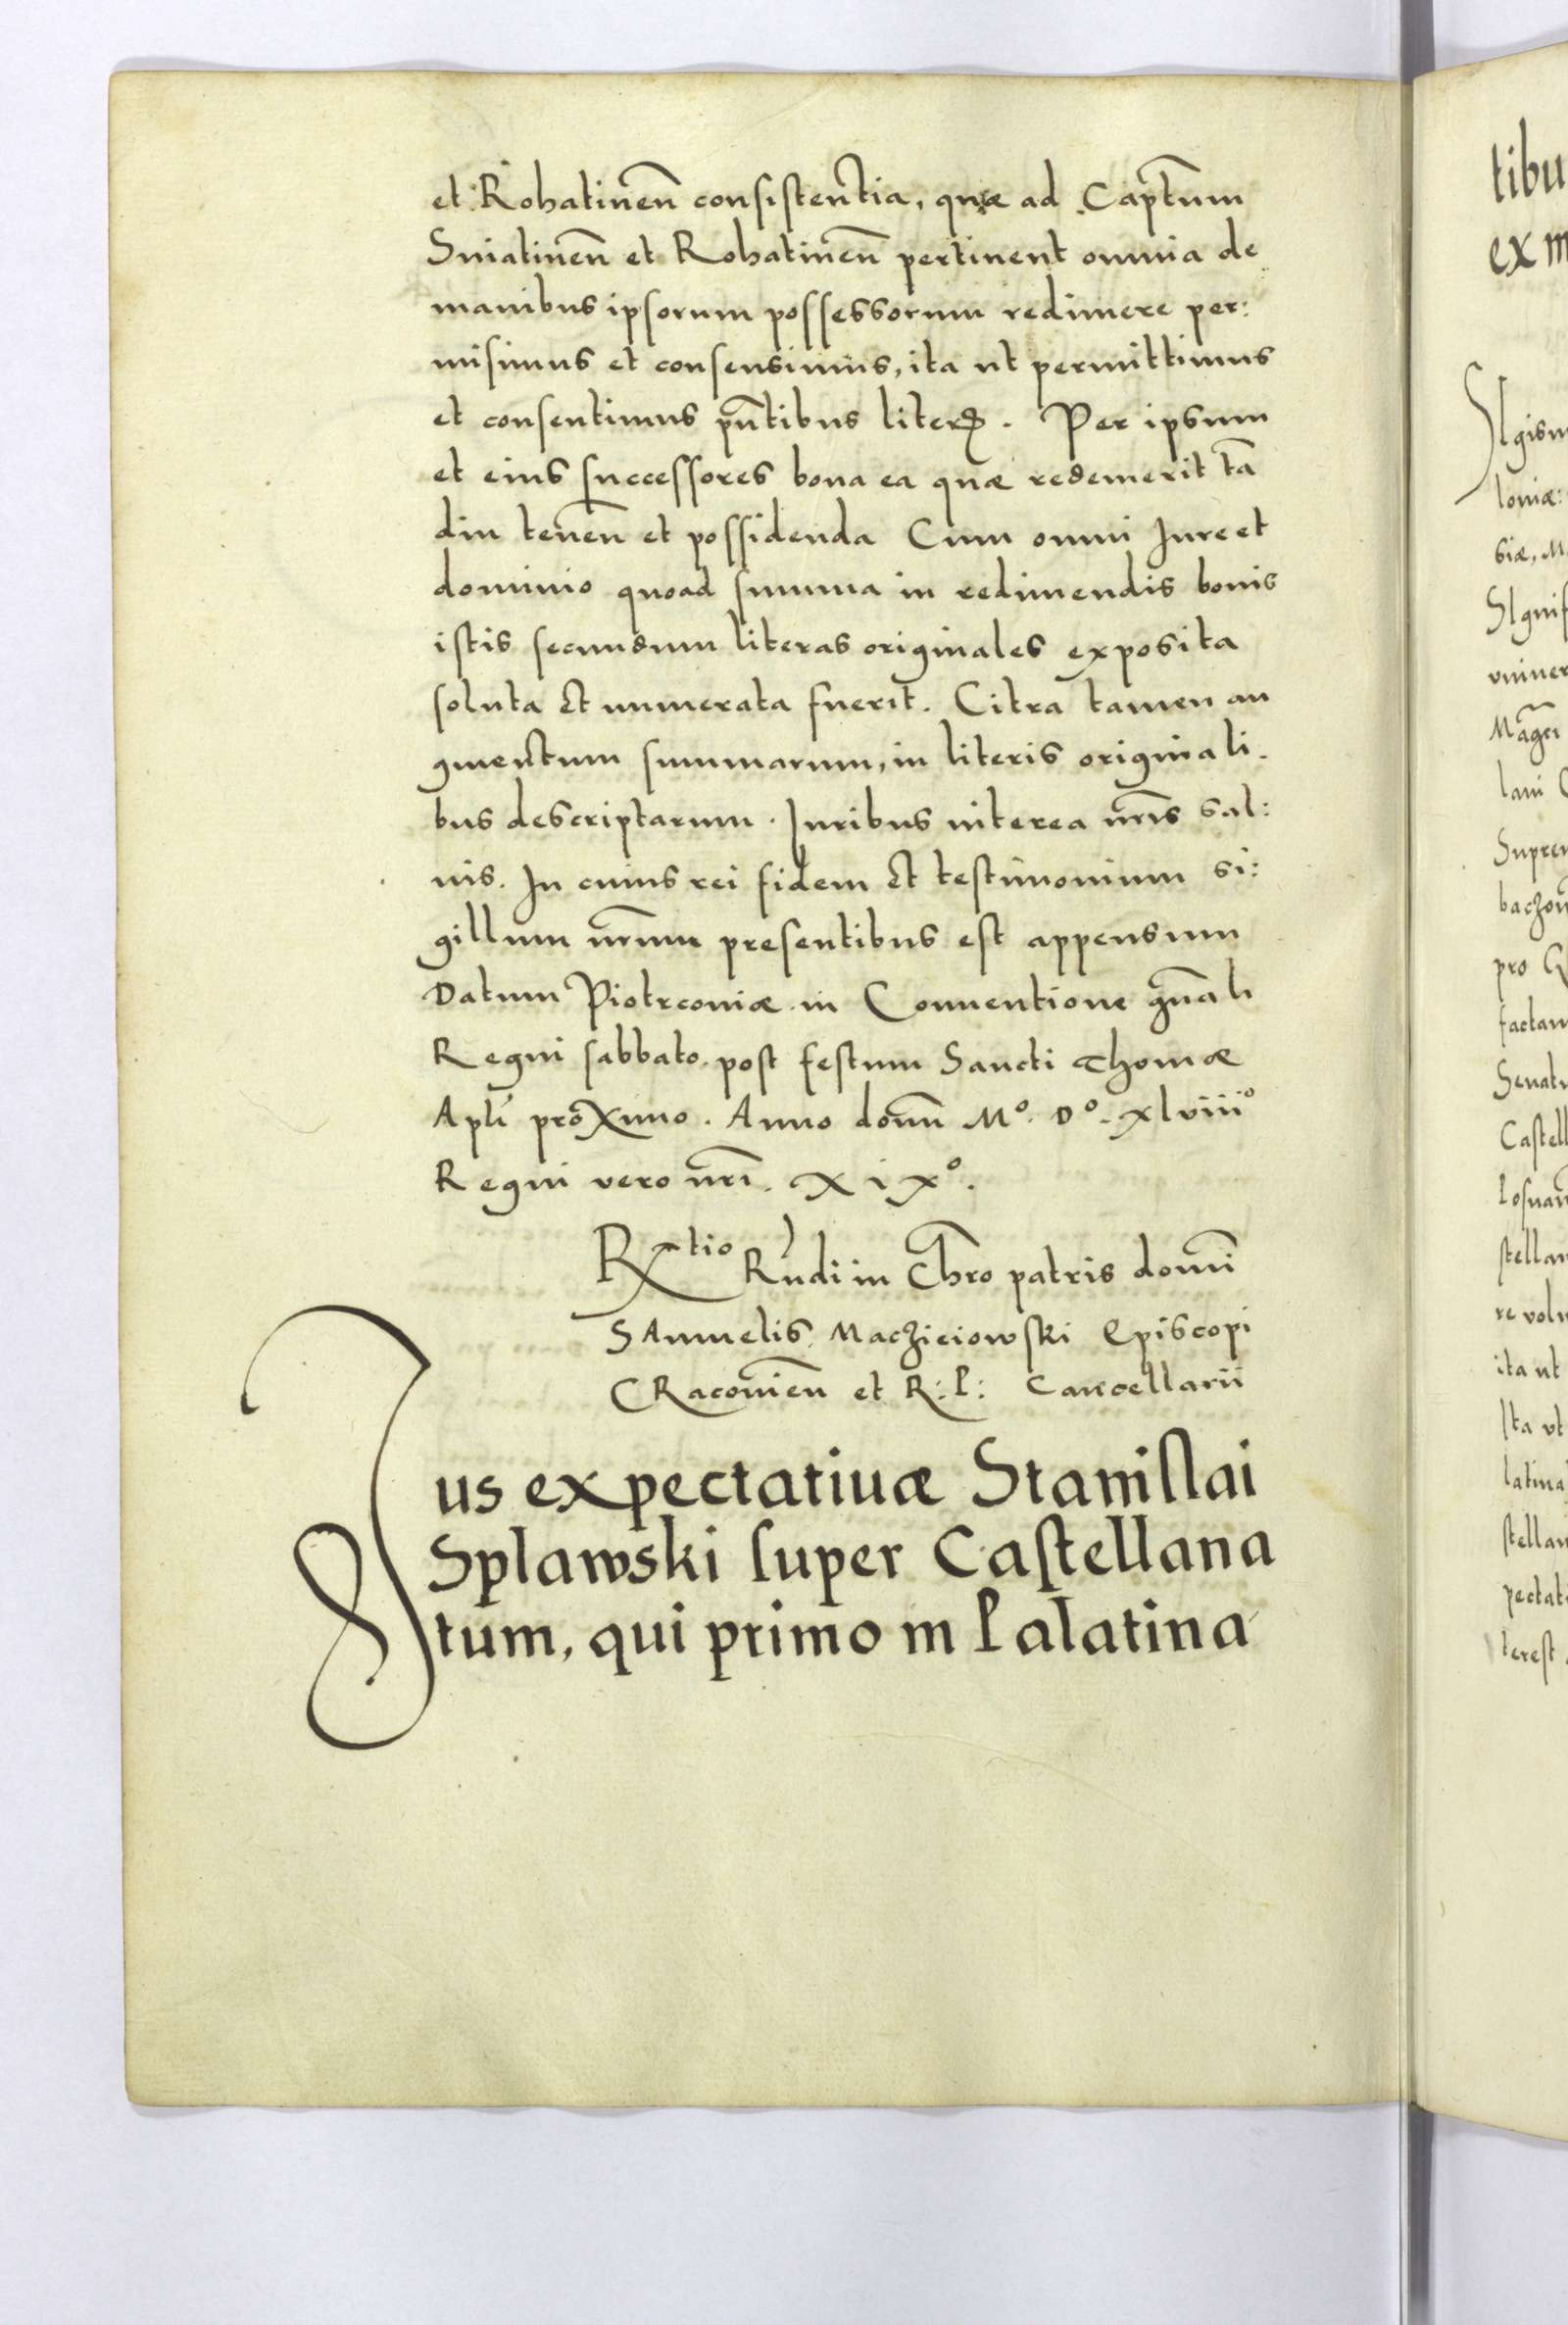 et Rohatineñ consistentia, quæ ad Capt̃um
Sniatineñ et Rohatineñ pertinent omnia de
manibus ipsorum possessorum redimere per:
misimus et consensimus, ita ut permittimus
et consentimus pñtibus literꝭ. Per ipsum
et eius successores bona ea quæ redemerit tã
diu teneñ et possidenda Cum omni Jure et
dominio quoad summa in redimendis bonis
istis secundum literas originales exposita
soluta Et numerata fuerit. Citra tamen au
gmentum summarum, in literis originali-
bus descriptarum. Juribus interea nr̃is sal:
uis. In cuius rei fidem Et testimonium si:
gillum nr̃um presentibus est appensum
Datum Piotrcoviæ in Conventione gñali
Regni sabbato post festum Sancti Thomæ
Apli proximo. Anno domĩ Mº. Dº. xlviiiº
Regni vero nr̃i. xixº.
Rxtio Rñdi in Chr̃o patris domĩ
SAmuelis Maczieiowski Episcopi
CRacovieñ et R: P: Cancellarii
Jus expectatiuæ Stanislai
Splawski super Castellana
tum, qui primo in Palatina
tibu
ex m
SIgism
loniæ:
siæ, M
SIgnif
vniuer
Mãgci
lani C
Suprem
baczoñ
pro G
factam
Senatu
Castell
losnañ
stellan
re volu
ita ut
Ita vt
latina
stellan
pectati
terest